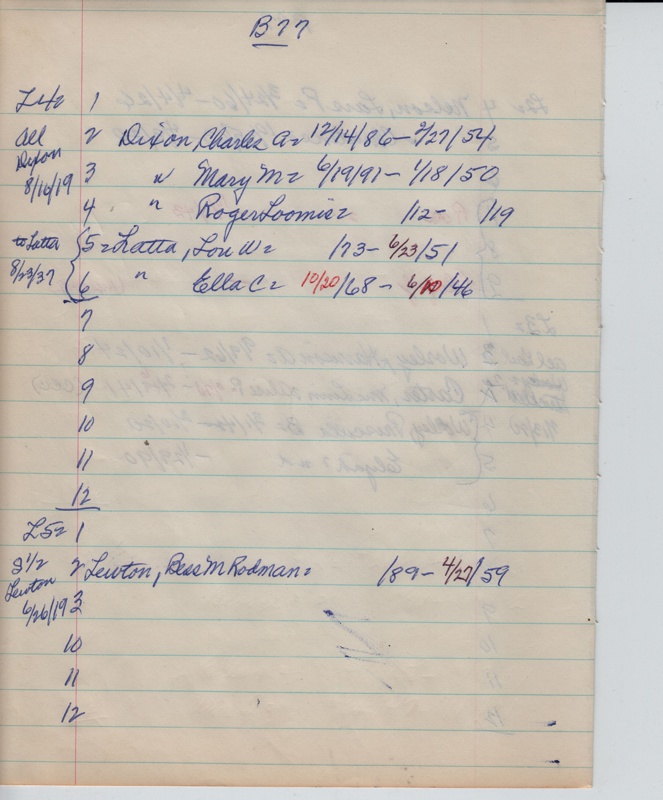 B77
L4= 1
All 2 Dixon, Charles A= 12/14/86 - 2/27/54
Dixon 3 " Mary M= 6/19/91 - 1/18/50
8/16/19
4 " Roger Loomis= /12 - /19
to Latta 5= Latta, Lou W= /73 - 6/23/51
8/23/37 6 " Ella C= 10/20/68 - 6/10/46
7
8
9
10
11
12
L5= 1
S1/2 2 Lewton, Bess M Rodman= /89 - 4/27/59
Lewton
6/26/19 3
10
11
12